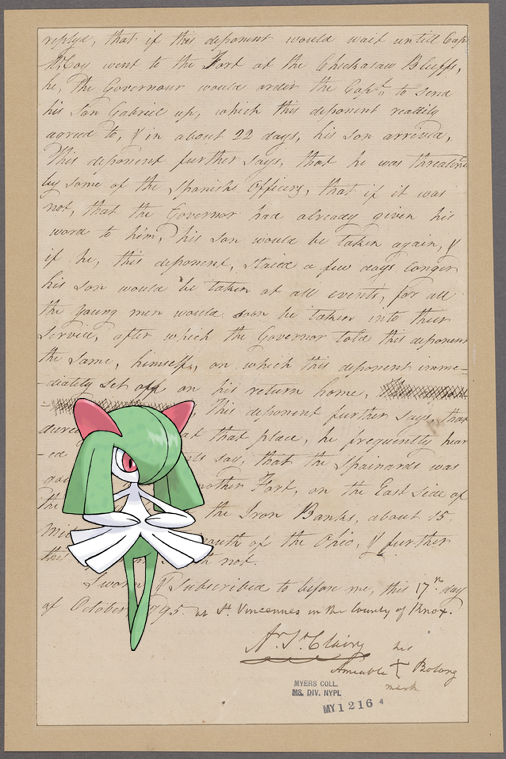 replyd, that if this deponent would wait untill Cap
McCoy went to the Fort at the Chickasaw Bluffs,
he, The Governour would order the Cap.t to send
his Son Gabriel up, which this deponent readily
agreed to, & in about 22 days, his son arrived,
This deponent further Says, that he was threatene
by some of the Spanish Officers, that if it was
not, that the Governor had already given his
word to him, his Son would be taken again, &
if he, this deponent, Staied a few days longer
his Son would be taken at all events, for all
the young men would soon be taken into their
Service, after which the Governor told this deponent
the Same, himself, on which this deponent imme-
-diately Set off on his return home,
This deponent further Says, that
at that place, he frequently hear
-ed say, that the Spaniards was
nother Fort, on the East Side of
the the Iron Banks, about 15
outh of the Ohio, & further
not.
Sworn & Subscribed to before me, this 17th day
of October 1795 at St. Vincennes in the County of Knox.
Ar. St. Clair
his
Amable + Bolong
mark
MYERS COLL.
MS. DIV. NYPL
MY 1216 4